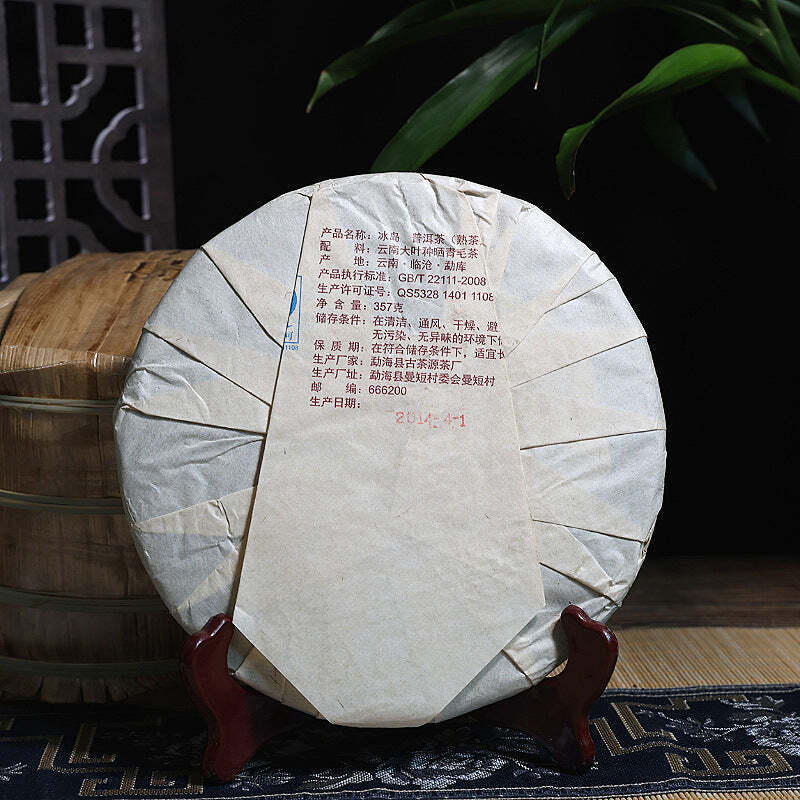 产品名称：冰岛 普洱茶（熟茶）
配 料：云南大叶种晒青毛茶
产 地：云南·临沧·勐库
产品执行标准：GB/T 22111-2008
生产许可证号：QS5328 1401 1108
净 含 量：357克
储存条件：在清洁、通风、干燥、避
无污染、无异味的环境下
保 质 期：在符合储存条件下，适宜长
生产厂家：勐海县古茶源茶厂
生产厂址：勐海县曼短村委会曼短村
邮 编：666200
生产日期：
2014-4-1
司
1108